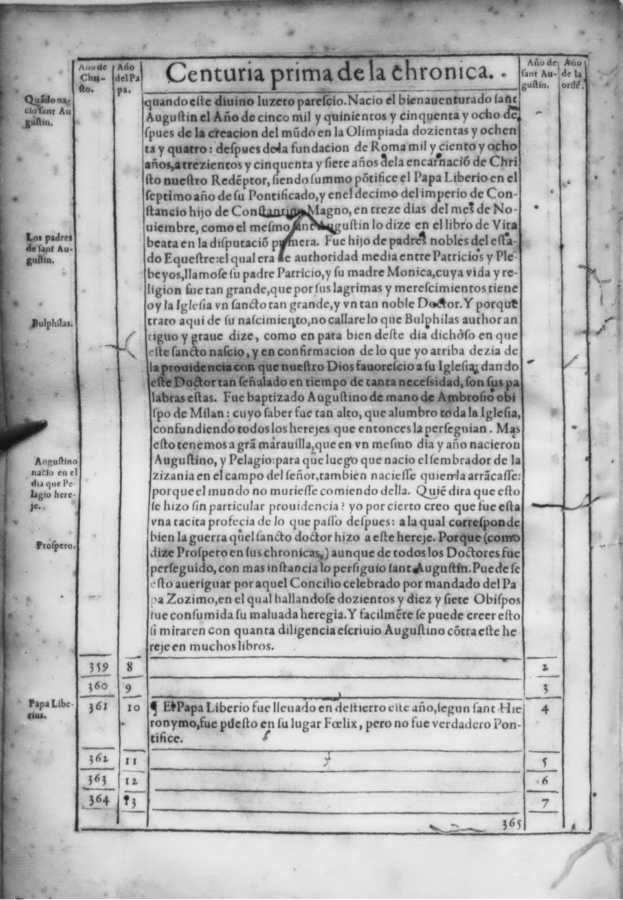 Año de Christo.
Año del Papa.
Centuria prima de la chronica.
Año de sant Augustin.
Año de la ordē.
Quādo nacio sant Augustin.
quando este diuino luzero parescio. Nacio el bienauenturado sant
Augustin el Año de cinco mil y quinientos y cinquenta y ocho de
spues de la creacion del mūdo en la Olimpiada dozientas y ochen
ta y quatro: despues de la fundacion de Roma mil y ciento y ocho
años, a trezientos y cinquenta y siete años de la encarnació de Chri
sto nuestro Redēptor, siendo summo pōtifice el Papa Liberio en el
septimo año de su Pontificado, y en el decimo del imperio de Con-
stancio hijo de Constantino Magno, en treze dias del mes de No-
uiembre, como el mesmo sant Augustin lo dize en el libro de Vita
Los padres de sant Augustin.
beata en la disputació primera. Fue hijo de padres nobles del esta-
do Equestre: el qual era de authoridad media entre Patricios y Ple-
beyos, llamose su padre Patricio, y su madre Monica, cuya vida y re-
ligion fue tan grande, que por sus lagrimas y merescimientos tiene
oy la Iglesia vn sancto tan grande, y vn tan noble Doctor. Y porque
Bulphilas.
trato aqui de su nascimiento, no callare lo que Bulphilas author an
tiguo y graue dize, como en para bien deste dia dichoso en que
este sancto nascio, y en confirmacion de lo que yo arriba dezia de
la prouidencia con que nuestro Dios fauorescio a su Iglesia, dando
este Doctor tan señalado en tiempo de tanta necessidad, son sus pa
labras estas. Fue baptizado Augustino de mano de Ambrosio obi
spo de Milan: cuyo saber fue tan alto, que alumbro toda la Iglesia,
confundiendo todos los herejes que entonces la perseguian. Mas
esto tenemos a grā marauilla, que en vn mesmo dia y año nacieron
Augustino nacio en el dia que Pelagio hereje.
Augustino, y Pelagio: para que luego que nacio el sembrador de la
zizania en el campo del señor, tambien naciesse quien la arrācasse:
porque el mundo no muriesse comiendo della. Quiē dira que esto
se hizo sin particular prouidencia? yo por cierto creo que fue esta
vna tacita profecia de lo que passo despues: a la qual corresponde
bien la guerra q̄ el sancto doctor hizo a este hereje. Porque (como
Prospero.
dize Prospero en sus chronicas,) aunque de todos los Doctores fue
perseguido, con mas instancia lo persiguio sant Augustin. Puede se
esto aueriguar por aquel Concilio celebrado por mandado del Pa
pa Zozimo, en el qual hallandose dozientos y diez y siete Obispos
fue consumida su maluada heregia. Y facilmēte se puede creer esto
si miraren con quanta diligencia escriuio Augustino cōtra este he
reje en muchos libros.
359 8 2
360 9 3
Papa Liberius.
361 10 ¶ El Papa Liberio fue lleuado en destierro este año, segun sant Hie 4
ronymo, fue puesto en su lugar Fœlix, pero no fue verdadero Pon-
tifice.
362 11 5
363 12 6
364 13 7
365